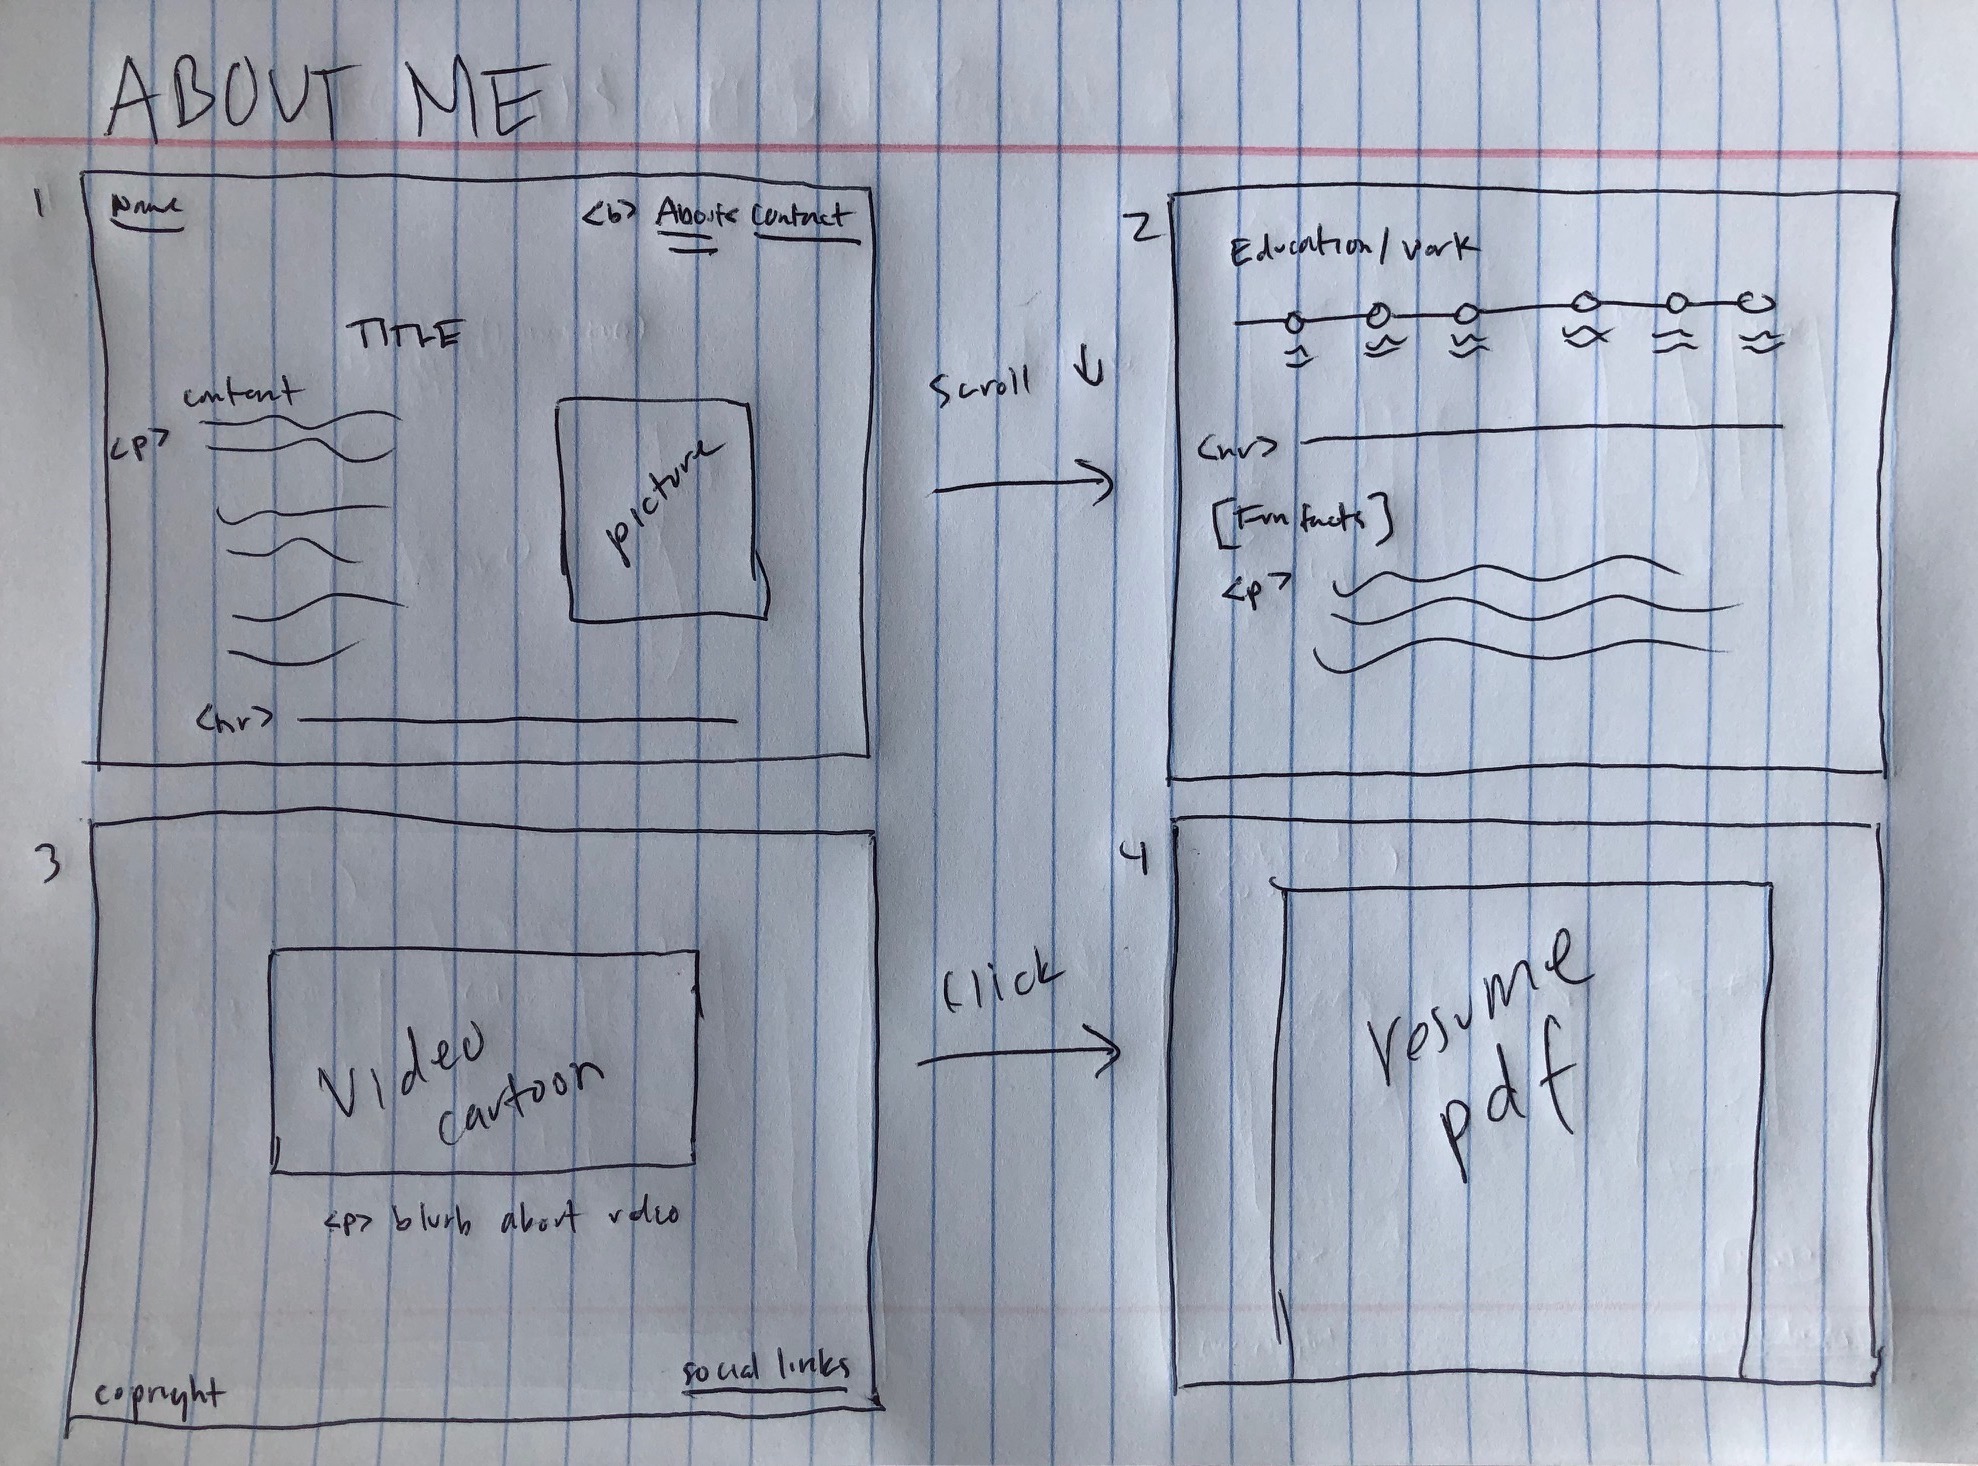 ABOUT ME
1
Name
<b> About Contact
TITLE
content
<p>
picture
<hr>
Scroll ↓
2
Education/work
<hr>
[Fun facts]
<p>
3
Video
cartoon
<p> blurb about video
copyright
social links
Click
4
resume
pdf